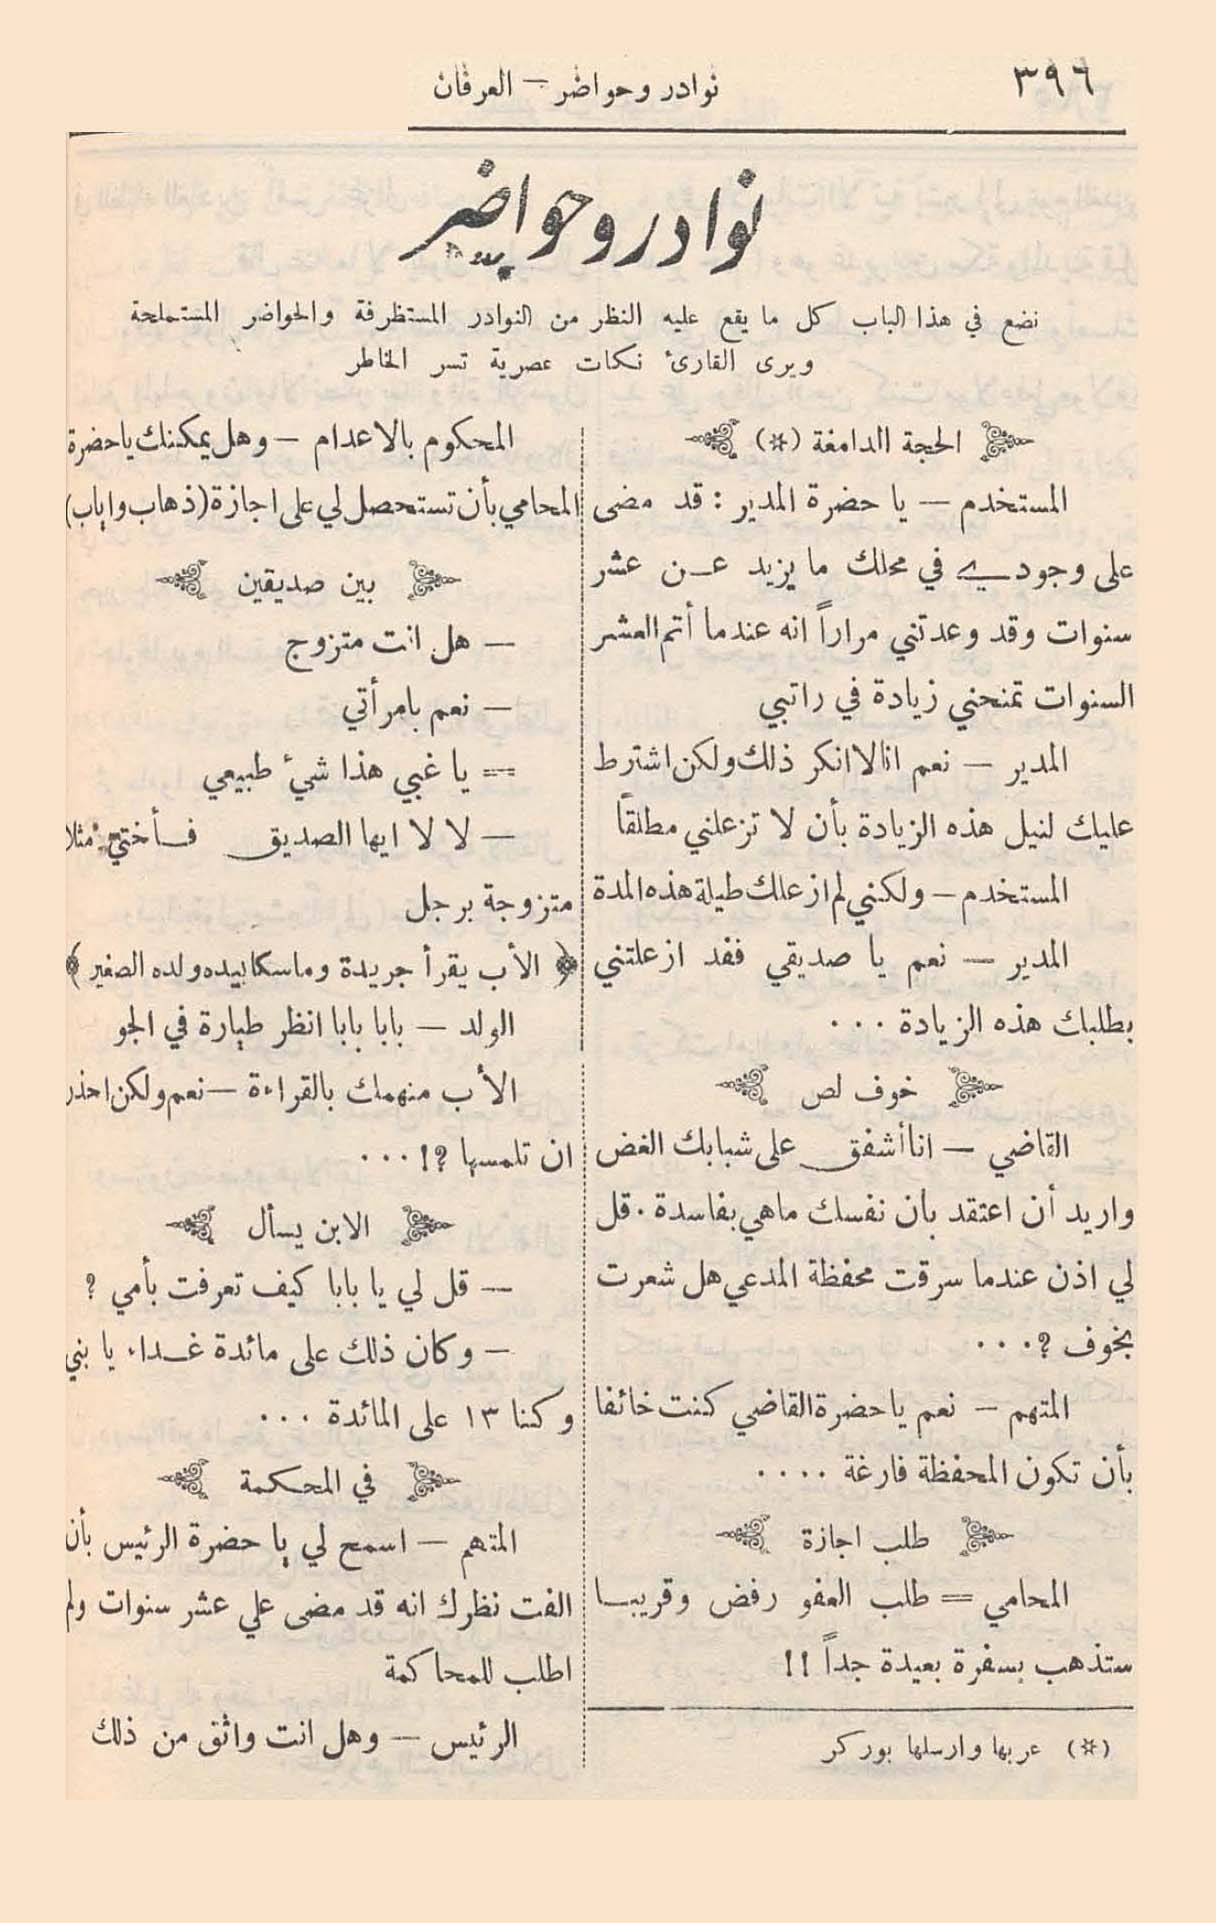 ٣٩٦
نوادر وحواضر – العرفان
نوادر وحواضر
نضع في هذا الباب كل ما يقع عليه النظر من النوادر المستظرفة والحواضر المستملحة
ويرى القارئ نكات عصرية تسر الخاطر
الحجة الدامغة (*)
المستخدم – يا حضرة المدير : قد مضى
على وجودي في محلك ما يزيد عن عشر
سنوات وقد وعدتني مراراً انه عندما أتم العشر
السنوات تمنحني زيادة في راتبي
المدير – نعم انا لا انكر ذلك ولكن اشترط
عليك لنيل هذه الزيادة بأن لا تزعلني مطلقاً
المستخدم – ولكنني لم ازعلك طيلة هذه المدة
المدير – نعم يا صديقي فقد ازعلتني
بطلبك هذه الزيادة . . .
خوف لص
القاضي – انا أشفق على شبابك الغض
واريد أن اعتقد بان نفسك ماهي بفاسدة . قل
لي اذن عندما سرقت محفظة المدعي هل شعرت
بخوف ؟ . . .
المتهم – نعم يا حضرة القاضي كنت خائفا
بأن تكون المحفظة فارغة . . . .
طلب اجازة
المحامي = طلب العفو رفض وقريبا
ستذهب بسفرة بعيدة جداً !!
(*) عربها وارسلها بوركر
المحكوم بالاعدام – وهل يمكنك يا حضرة
المحامي بأن تستحصل لي على اجازة (ذهاب واياب)
بين صديقين
– هل انت متزوج
– نعم بامرأتي
== يا غبي هذا شيء طبيعي
– لا لا ايها الصديق فأختي مثلا
متزوجة برجل
﴿ الأب يقرأ جريدة وماسكا بيده ولده الصغير ﴾
الولد – بابا بابا انظر طيارة في الجو
الأب منهمك بالقراءة – نعم ولكن احذر
ان تلمسها ؟! . . .
الابن يسأل
– قل لي يا بابا كيف تعرفت بأمي ؟
– وكان ذلك على مائدة غداء يا بني
وكنا ١٣ على المائدة . . .
في المحكمة
المتهم – اسمح لي يا حضرة الرئيس بأن
الفت نظرك انه قد مضى علي عشر سنوات ولم
اطلب للمحاكمة
الرئيس – وهل انت واثق من ذلك